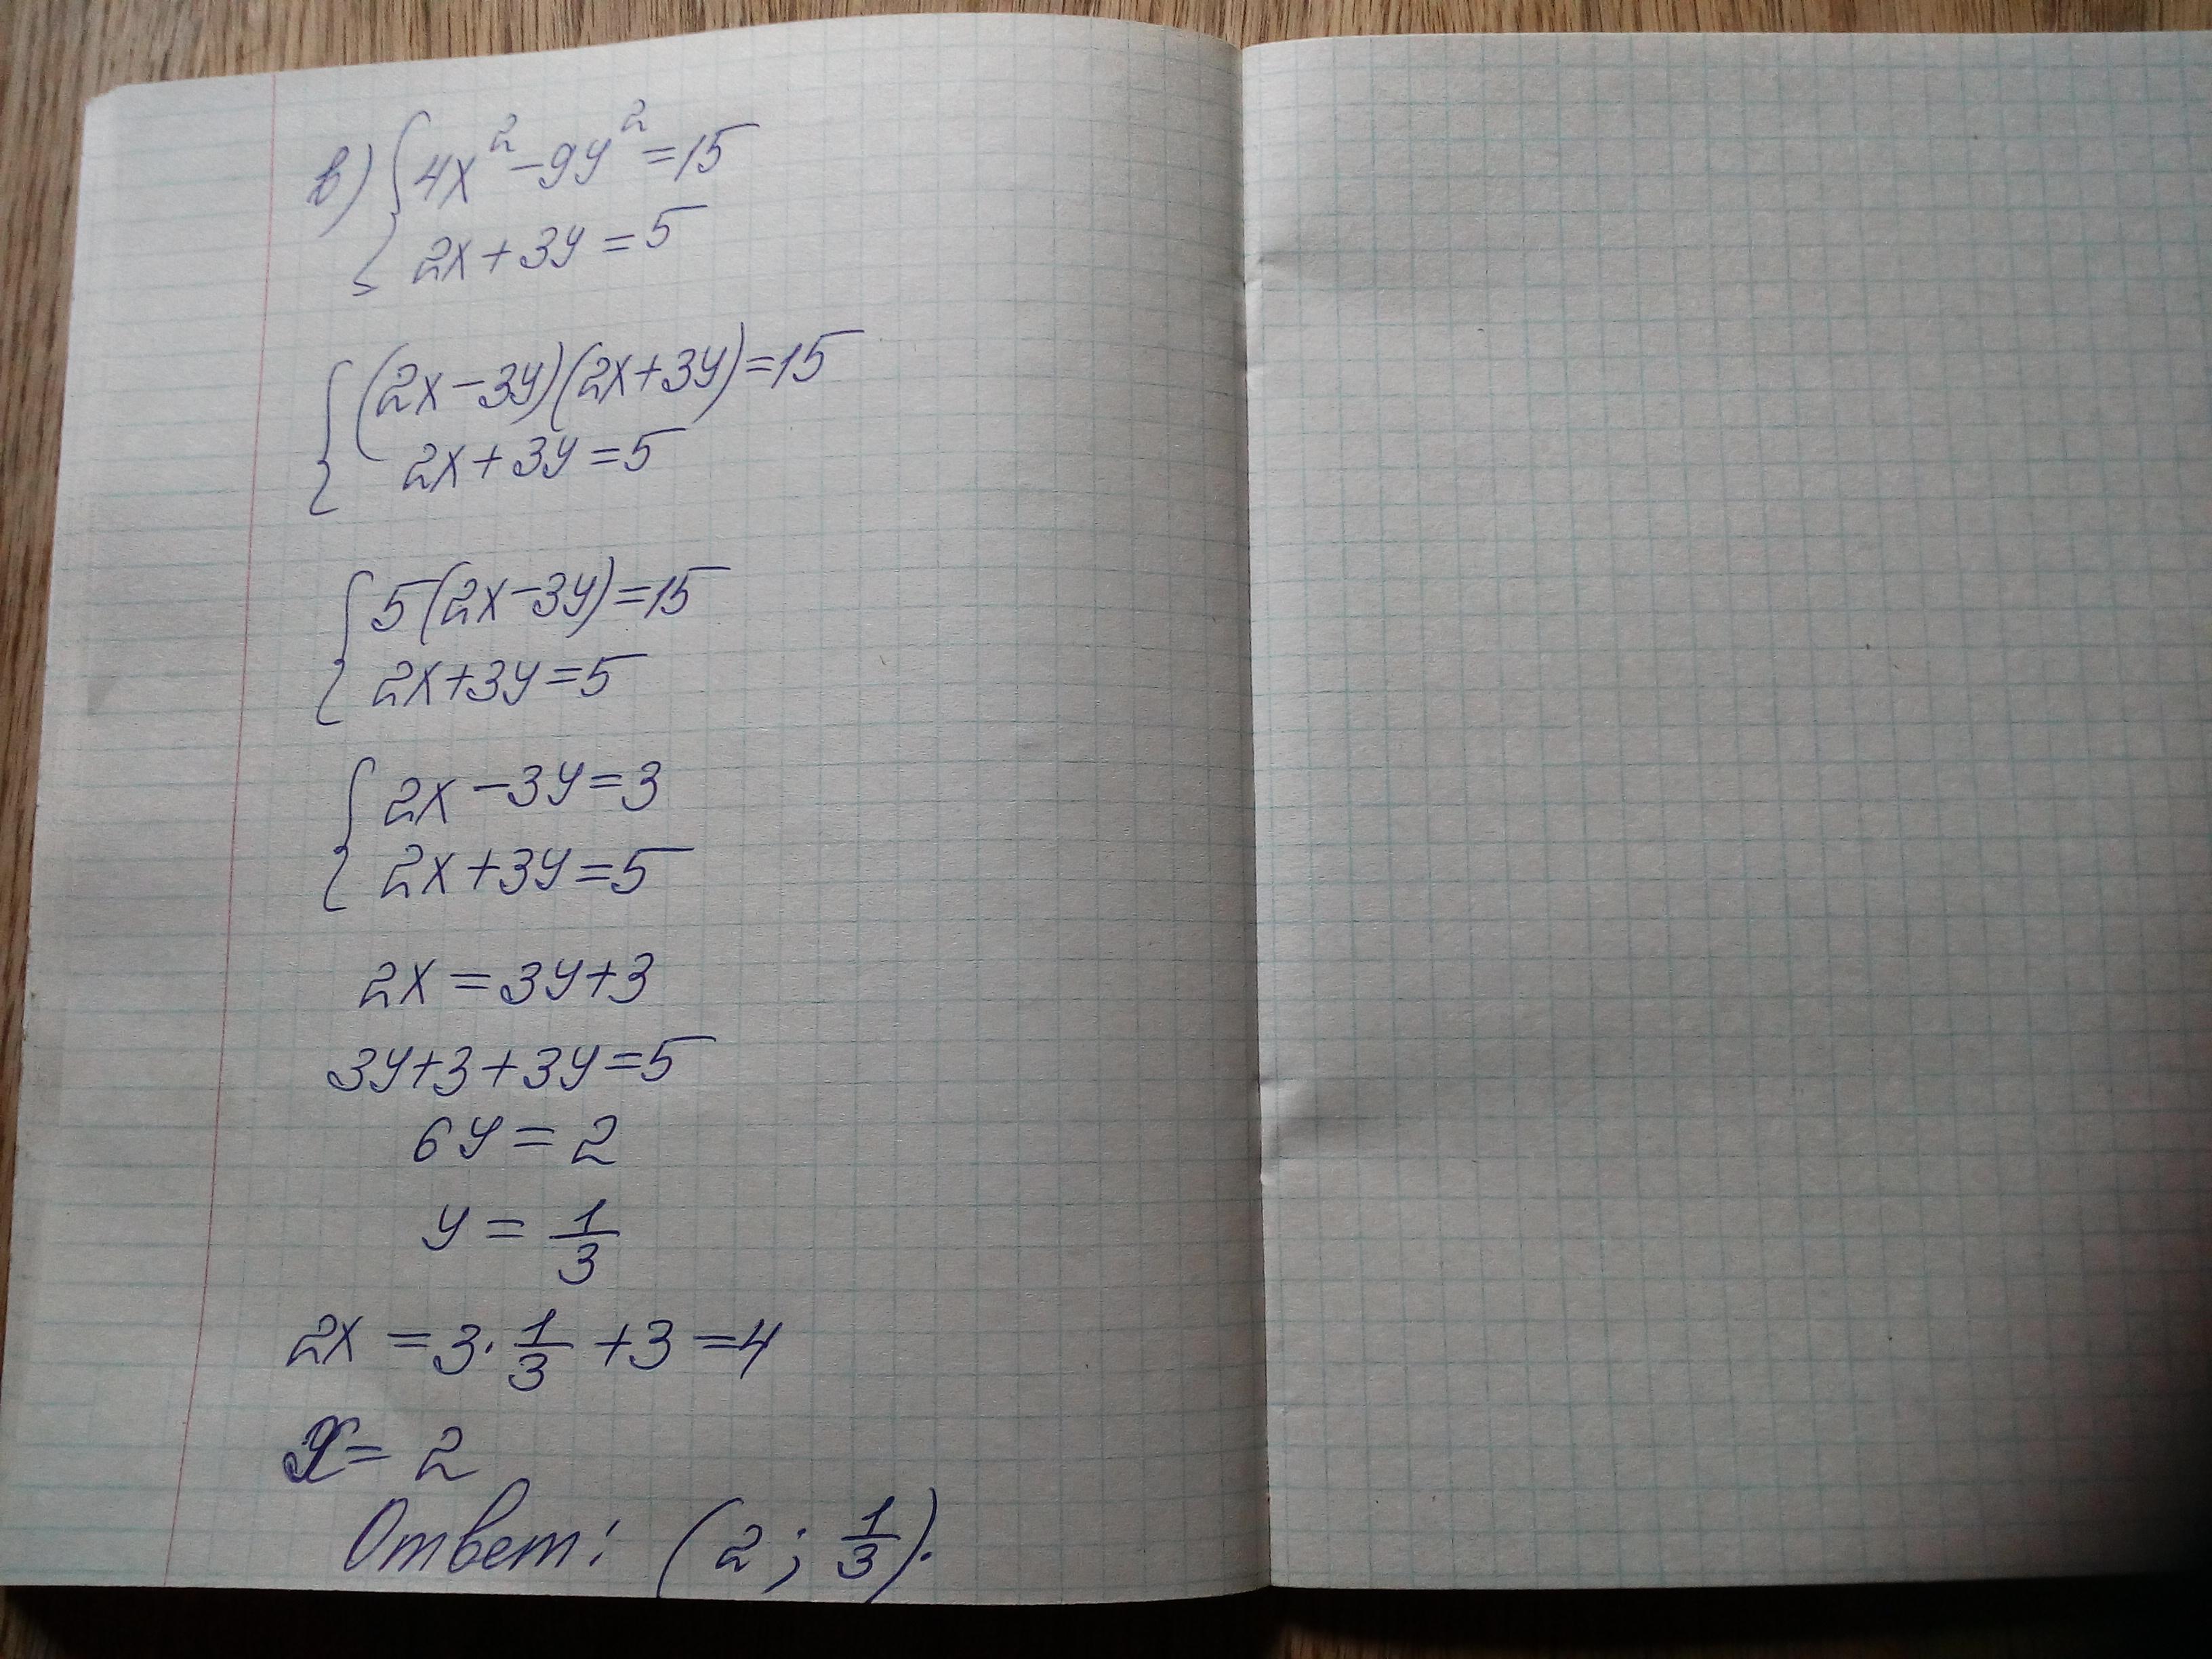 в) { 4x² - 9y² = 15
2x + 3y = 5
{ (2x - 3y)(2x + 3y) = 15
2x + 3y = 5
{ 5(2x - 3y) = 15
2x + 3y = 5
{ 2x - 3y = 3
2x + 3y = 5
2x = 3y + 3
3y + 3 + 3y = 5
6y = 2
y = 1/3
2x = 3 · 1/3 + 3 = 4
x = 2
Ответ: (2; 1/3).